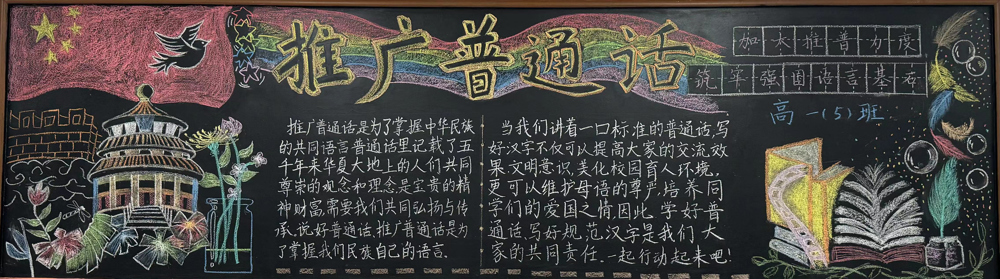 推广普通话
加大推普力度
筑牢强国语言基石
高一(5)班
推广普通话是为了掌握中华民族
的共同语言普通话里记载了五
千年来华夏大地上的人们共同
尊崇的观念和理念是宝贵的精
神财富,需要我们共同弘扬与传
承,说好普通话,推广普通话是为
了掌握我们民族自己的语言.
当我们讲着一口标准的普通话,写
好汉字不仅可以提高大家的交流效
果.文明意识,美化校园育人环境,
更可以维护母语的尊严,培养同
学们的爱国之情因此,学好普
通话,写好规范汉字是我们大
家的共同责任.一起行动起来吧!